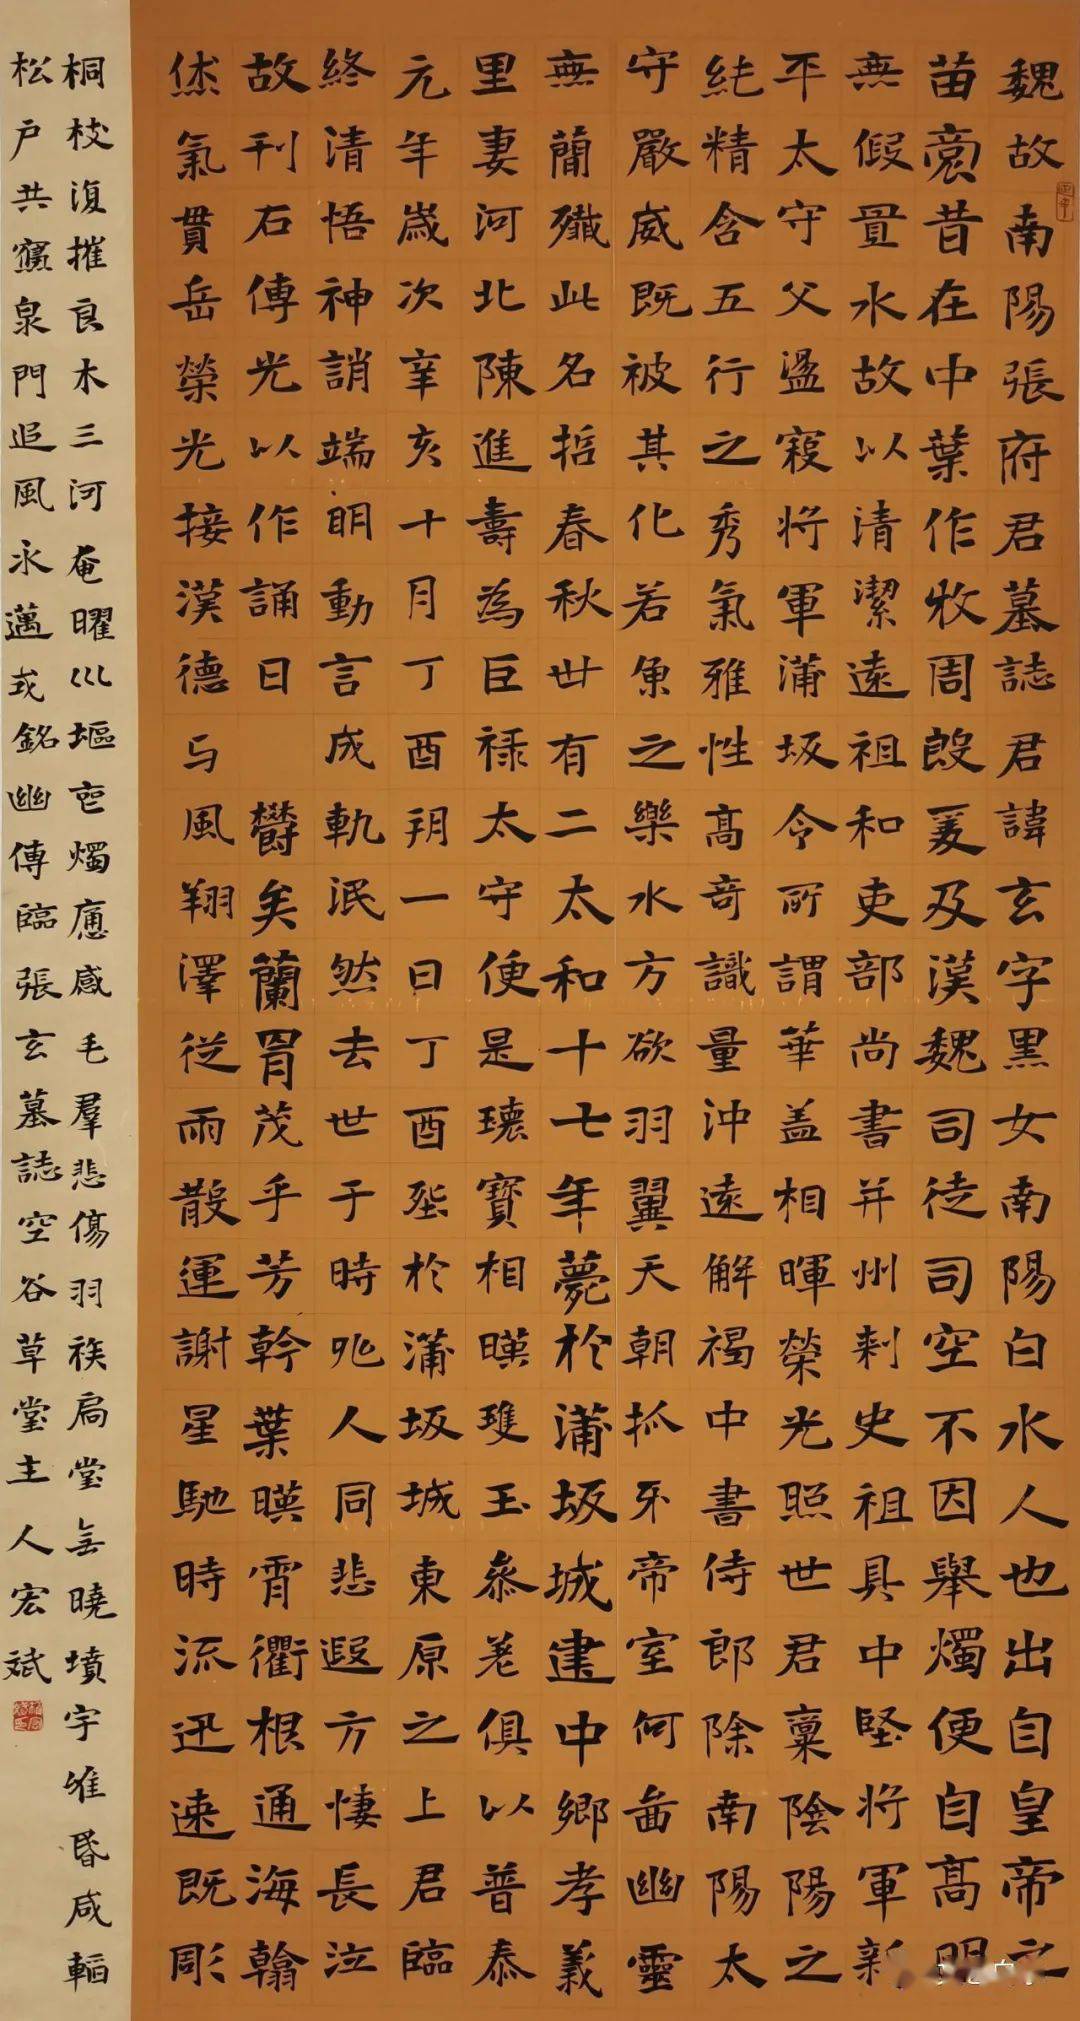 魏故南陽張府君墓誌君諱玄字黑女南陽白水人也出自皇帝之
苗裔昔在中葉作牧周殷爰及漢魏司徒司空不因舉燭便自高明
無假置水故以清潔遠祖和吏部尚書并州刺史祖具中堅將軍新
平太守父盪寇將軍蒲坂令所謂華蓋相暉榮光照世君稟陰陽之
純精含五行之秀氣雅性高奇識量沖遠解褐中書侍郎除南陽太
守嚴威既被其化若草之樂水方欲羽翼天朝抓牙帝室何啚幽靈
無簡殲此名哲春秋卅有二太和十七年薨於蒲坂城建中鄉孝義
里妻河北陳進壽為巨祿太守便是瓌寶相暎瓊玉參差俱以普泰
元年歲次辛亥十月丁酉朔一日丁酉塟於蒲坂城東原之上君臨
終清悟神誚端明動言成軌泯然去世于時兆人同悲遐方悽長泣
故刊石傳光以作誦曰 欝矣蘭胃茂乎芳幹葉暎霄衢根通海翰
烋氣貫岳榮光接漢德与風翔澤從雨散運謝星馳時流迅速既彫
桐枝復摧良木三河奄曜巛堰𠅘燭應感毛羣悲傷羽族扃堂無曉墳宇唯昏咸韜
松戶共寢泉門追風永邁式銘幽傳臨張玄墓誌空谷草堂主人宏斌